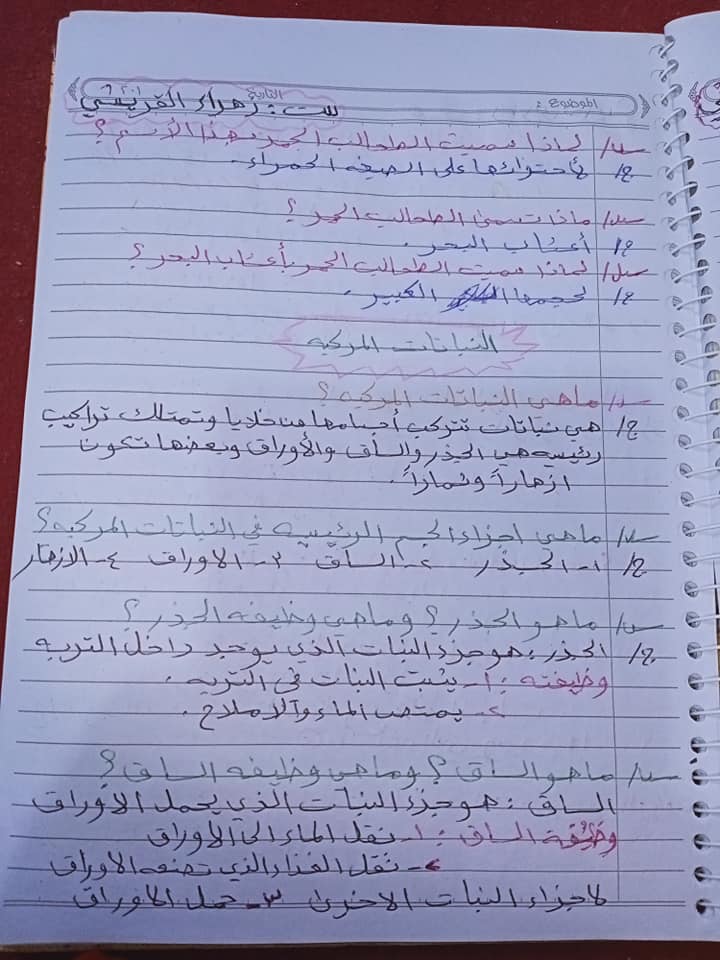 الموضوع :
التاريخ
ست : زهراء القريشي
س/ لماذا سميت الطحالب الحمر بهذا الأسم ؟
ج/ لأحتوائها على الصبغه الحمراء .
س/ ماذا تسمى الطحالب الحمر ؟
ج/ أعشاب البحر .
س/ لماذا سميت الطحالب الحمر بأعشاب البحر ؟
ج/ لحجمها الكبير .
النباتات المركبه
س/ ماهي النباتات المركبه ؟
ج/ هي نباتات تتركب أجسامها من خلايا وتمتلك تراكيب
رئيسه هي الجذر والساق والأوراق وبعضها تكون
ازهاراً وثماراً .
س/ ماهي اجزاء الجسم الرئيسه في النباتات المركبه ؟
ج/ ١- الجذر ٢- الساق ٣- الاوراق ٤- الازهار
س/ ماهو الجذر ؟ وماهي وظيفه الجذر ؟
ج/ الجذر : هو جزء النبات الذي يوجد داخل التربه
وظيفته : ١- يثبت النبات في التربه .
٢- يمتص الماء والاملاح .
س/ ماهو الساق ؟ وماهي وظيفه الساق ؟
الساق : هو جزء النبات الذي يحمل الأوراق
وظيفة الساق : ١- نقل الماء الى الأوراق
٢- نقل الغذاء الذي تصنعه الاوراق
لاجزاء النبات الاخرى ٣- حمل الاوراق